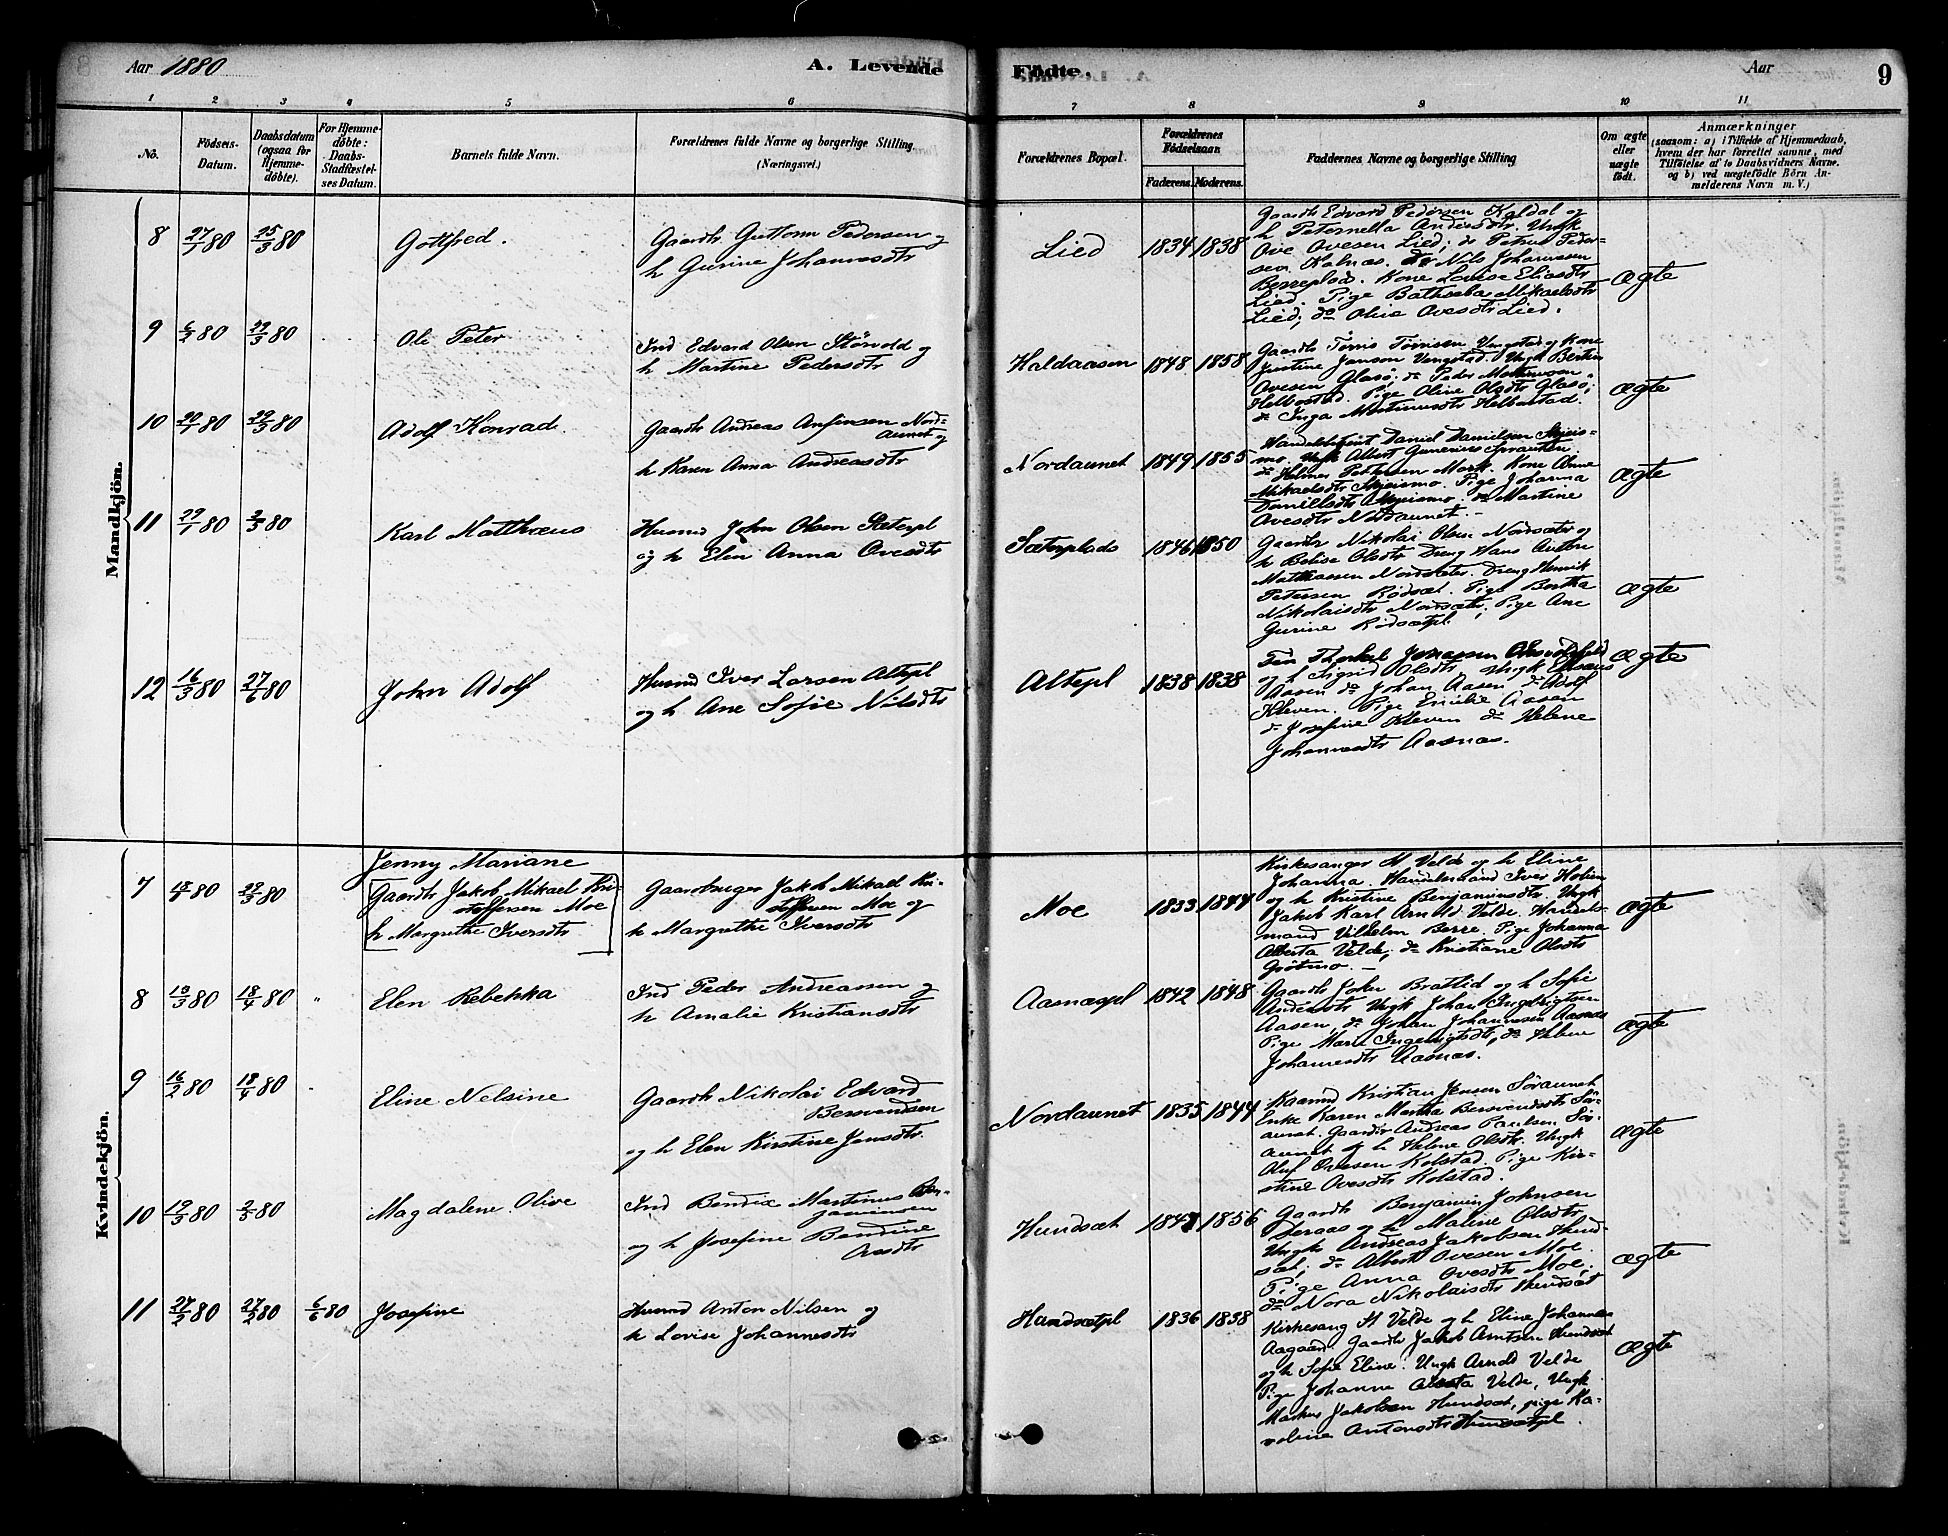 Aar 1880
A. Levende
Födte.
Aar
9
1
2
3
4
5
6
7
8
9
10
11
No.
Födsels-
Datum.
Daabsdatum
(ogsaa for
Hjemme-
döbte).
For Hjemme-
döbte:
Daabs-
Stadfæstel-
ses Datum.
Barnets fulde Navn.
Forældrenes fulde Navne og borgerlige Stilling
(Næringsvei.)
Forældrenes Bopæl.
Forældrenes
Födselsaar
Faderens.
Moderens.
Faddernes Navne og borgerlige Stilling
Om ægte
eller
uægte
födt.
Anmærkninger
(saasom: a) i Tilfælde af Hjemmedaab,
hvem der har forrettet samme, med
Tilföielse af to Daabsvidners Navne.
og b) ved uægtefödte Börn An-
melderens Navn m. V.)
Mandkjön.
8 27/1 80 25/3 80 Gottfred.
Gaardb Guttorm Pedersen og
h Gurine Johannesdtr
Lied 1834 1838
Gaardb Edvard Pedersen Kaldal og
h Peternella Andersdtr. Ungk
Ove Ovesen Lied; do Petrus Peder-
sen Kalnæs. do Nils Johannesen
Berreplads. Kone Lovise Eliasdtr
Lied. Pige Bathseba Mikaelsdtr
Lied; do Olive Ovesdtr Lied.
ægte
9 6/2 80 29/3 80 Ole Peter
Ind Edvard Olsen Störvold og
h Martine Pedersdtr
Haldaasen 1848 1858
Gaardb Tørris Tørrisen Vengstad og Kone
Justine Jenson Vengstad. Ungk Bertin
Ovesen Glasö; do Peder
Helbostad. Pige Oline Olsdtr Glasö;
do Inga Martinusdtr Helbostad.
ægte
10 20/1 80 29/3 80 Adolf Konrad.
Gaardb Andreas Anfinsen Nord-
aunet og
h Karen Anna Andreasdtr
Nordaunet 1849 1855
Handelsbetjent Daniel Danielsen Skjeis-
mo. Ungk Albert Gunerius
do Helmer Pettersen Mork. Kone Anne
Mikaelsdtr Skjeismo. Pige Johanna
Danielsdtr Skjeismo. do Martine
Ovesdtr Nordaunet.
ægte
11 29/1 80 2/5 80 Karl Matthæus
Husmd John Olsen Sæterpl
og h Elen Anna Ovesdtr
Sæterplads 1846 1850
Gaardb Nikolai Olsen Nordsæter og
h Belise Olsdtr Dreng Hans Anton
Matthæssen Nordsæter. Dreng Henrik
Petersen Rödsæt. Pige Bertha
Nikolaisdtr Nordsæter, Pige Ane
Gurine Rödsætpl.
ægte
12 16/3 80 27/6 80 John Adolf
Husmd Iver Larsen Altepl
og h Ane Sofie Nilsdtr
Altepl 1838 1838
Jonassen
og h Sigrid Olsdtr Ungk
Aasen do Johan Aasen do Adolf
Kleven. Pige Emilie Aasen
do Josefine Kleven do Helene
Johannesdtr Aasnæs.
ægte
Kvindekjön.
7 80 29/3 80 Jenny Mariane
Gaardb Jakob Mikael Kri-
stoffersen Moe
h Margrethe Iversdtr
Gaardbruger Jakob Mikael Kri-
stoffersen Moe og
h Margrethe Iversdtr
Moe 1833 1844
Kirkesanger H Velde og h Eline
Johanna. Handelsmand Iver Holien
og h Kristine Benjaminsdtr Ungk
Jakob Karl Arnold Velde. Handels-
mand Vilhelm Berre. Pige Johanna
Alberta Velde; do Kristiane Olsdtr
Grötmo.
ægte
8 13/3 80 18/4 80 " Elen Rebekka
Ind Peder Andreassen og
h Amalie Kristiansdtr
Aasnæspl 1842 1848
Gaardb John Brattlid og h Sofie
Andersdtr Ungk Johan Ingebrigtsen
Aasen, do Johan Johannesen Aasnæs
Pige Marie Ingebrigtsdtr, do Helene
Johannesdtr Aasnæs.
ægte
9 16/2 80 18/4 80 Eline Nelsine
Gaardb Nikolai Edvard
Bersvendsen
og h Elen Kirstine Jensdtr.
Nordaunet 1835 1844
Kaarmd Kristian Jensen Söraunet
Enke Karen Martha Bersvendsdtr Sör-
aunet. Gaardbr Andreas Paulsen Sör-
aunet og h Helene Olsdtr. Ungk
Oluf Ovesen Kolstad. Pige Kir-
stine Ovesdtr Kolstad.
ægte
10 19/3 80 2/5 80 Magdalene Olive
Ind Bendix Martinus Ben-
jaminsen
og h Josefine Bendine
Ovesdtr
Hundsæt 1847 1856
Gaardb Benjamin Johnsen
Deraas og h Maline Olsdtr,
Ungk Andreas Jakobsen Hund-
sæt; do Albert Ovesen Moe.
Pige Anna Ovesdtr Moe;
do Nora Nikolaisdtr Hundsæt
ægte
11 27/2 80 27/2 80 6/6 80 Josefine
Husmd Anton Nilsen og
h Lovise Johannesdtr
Hundsætpl 1836 1838
Kirkesang H Velde og h Eline Johannes
Aagaard. Gaardb Jakob Arntsen Hundsæt
og h Sofie Eline. Ungk Arnold Velde
Pige Johanne Alberta Velde, Ungk
Markus Jakobsen Hundsæt, pige Ka-
roline Antonsdtr Hundsætpl.
ægte